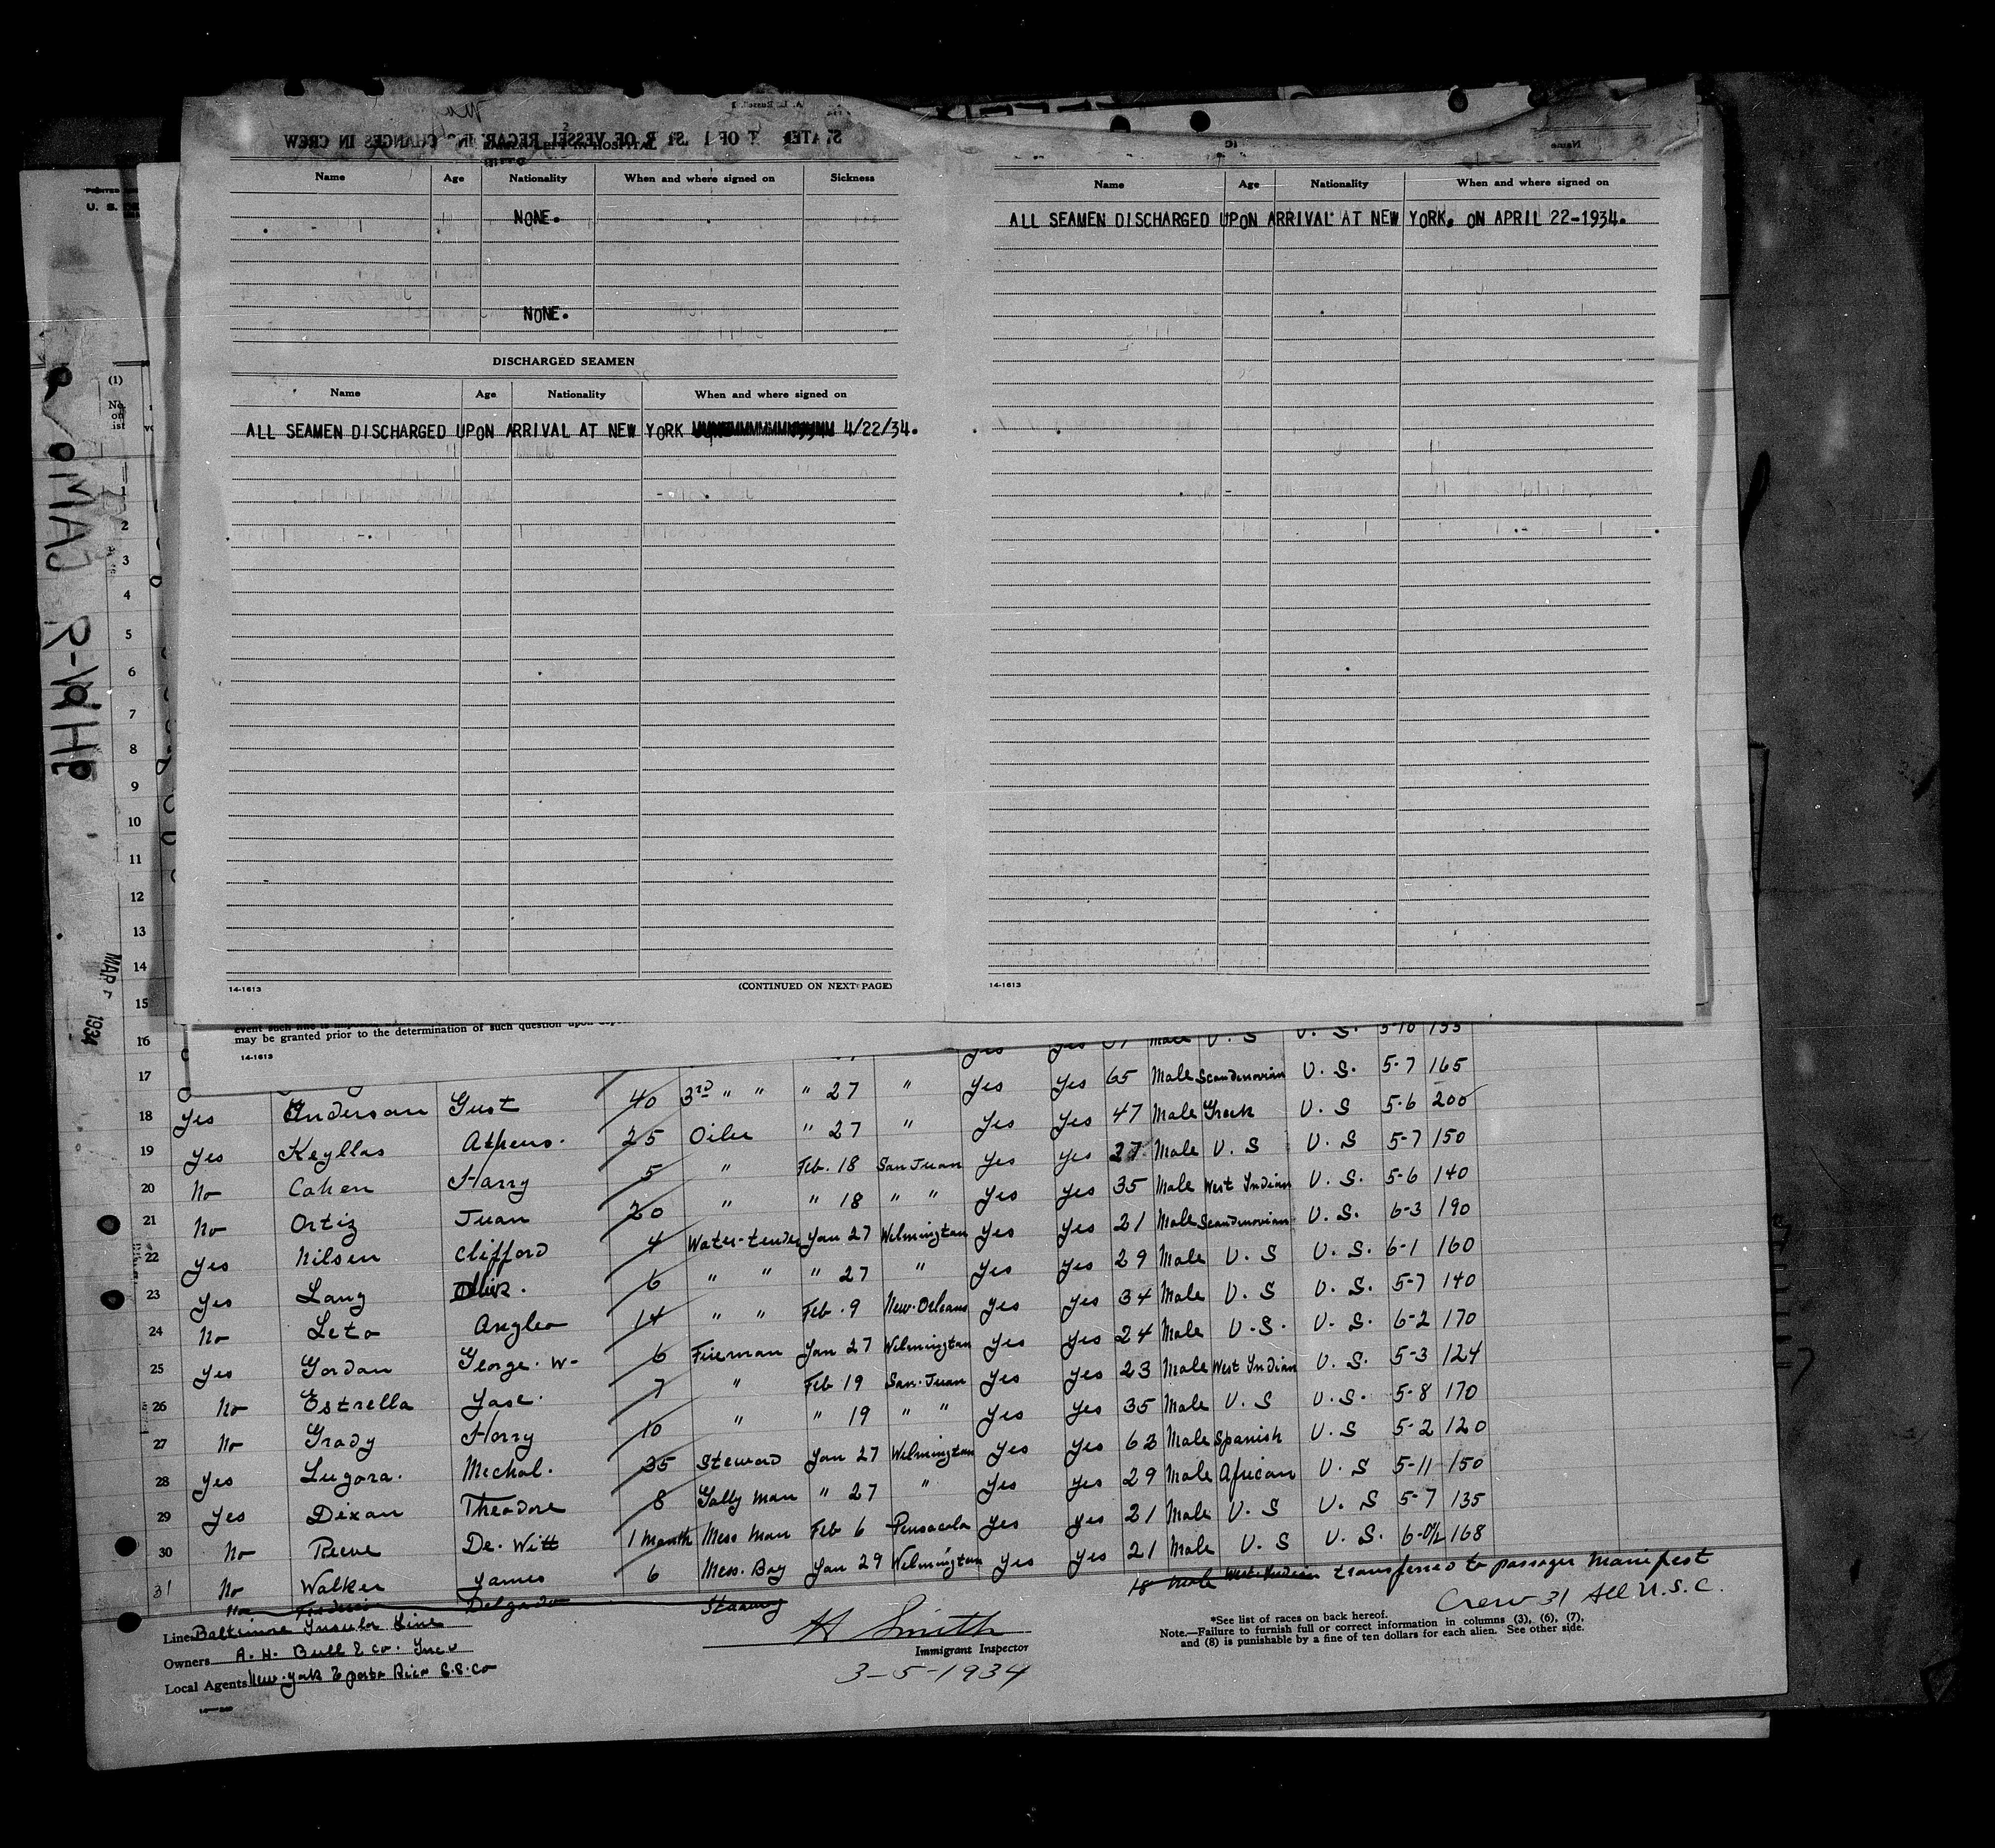 STATEMENT OF MASTER OF VESSEL REGARDING CHANGES IN CREW
Name Age Nationality When and where signed on Sickness
NONE.
NONE.
DISCHARGED SEAMEN
Name Age Nationality When and where signed on
ALL SEAMEN DISCHARGED UPON ARRIVAL AT NEW YORK 4/22/34.
14-1613 (CONTINUED ON NEXT PAGE)
Name
Name Age Nationality When and where signed on
ALL SEAMEN DISCHARGED UPON ARRIVAL AT NEW YORK. ON APRIL 22-1934.
14-1613
U. S.
(1)
No. on list
1
2
3
4
5
6
7
8
9
10
11
12
13
14
15
MAR 1934
may be granted prior to the determination of such question upon
14-1613
16 yes yes Male U. S U. S. 5-10 155
17 3rd " " " 27 " yes yes 65 Male Scandinavian U. S. 5-7 165
18 yes Anderson Gust 40 Oiler " 27 " yes yes 47 Male Greek U. S 5-6 200
19 yes Keyllas Athens. 25 " Feb. 18 San Juan yes yes 27 Male U. S U. S 5-7 150
20 No Cahen Harry 5 " " 18 " " yes yes 35 Male West Indian U. S. 5-6 140
21 No Ortiz Juan 20 Water-tender Jan 27 Wilmington yes yes 21 Male Scandinavian U. S. 6-3 190
22 yes Nilsen Clifford 4 " " " 27 " yes yes 29 Male U. S U. S. 6-1 160
23 yes Lang 6 " " Feb. 9 New-Orleans yes yes 34 Male U. S U. S. 5-7 140
24 No Leto Angleo 14 Fireman Jan 27 Wilmington yes yes 24 Male U. S. U. S. 6-2 170
25 yes Gordan George. W- 6 " Feb 19 San-Juan yes yes 23 Male West Indian U. S. 5-3 124
26 No Estrella Jase. 7 " " 19 " " yes yes 35 Male U. S U. S. 5-8 170
27 No Grady Harry 10 Steward Jan 27 Wilmington yes yes 63 Male Spanish U. S 5-2 120
28 yes Lugora. Mechal. 35 Gally man " 27 " yes yes 29 Male African U. S 5-11 150
29 yes Dixan Theadore 8 Mess man Feb 6 Pensacola yes yes 21 Male U. S U. S 5-7 135
30 No Reeve De. Witt 1 month Mess. Boy Jan 29 Wilmington yes yes 21 Male U. S U. S. 6-0½ 168
31 No Walker James 6
No Delgado 18 Male West-Indian transferred to passenger Manifest
Crew 31 All U.S.C.
Line Baltimore Insular Line
Owners A. H. Bull & co. Inc
Local Agents New-york & porto Rico S.S. Co
H Smith
Immigrant Inspector
3-5-1934
*See list of races on back hereof.
Note.—Failure to furnish full or correct information in columns (3), (6), (7),
and (8) is punishable by a fine of ten dollars for each alien. See other side.